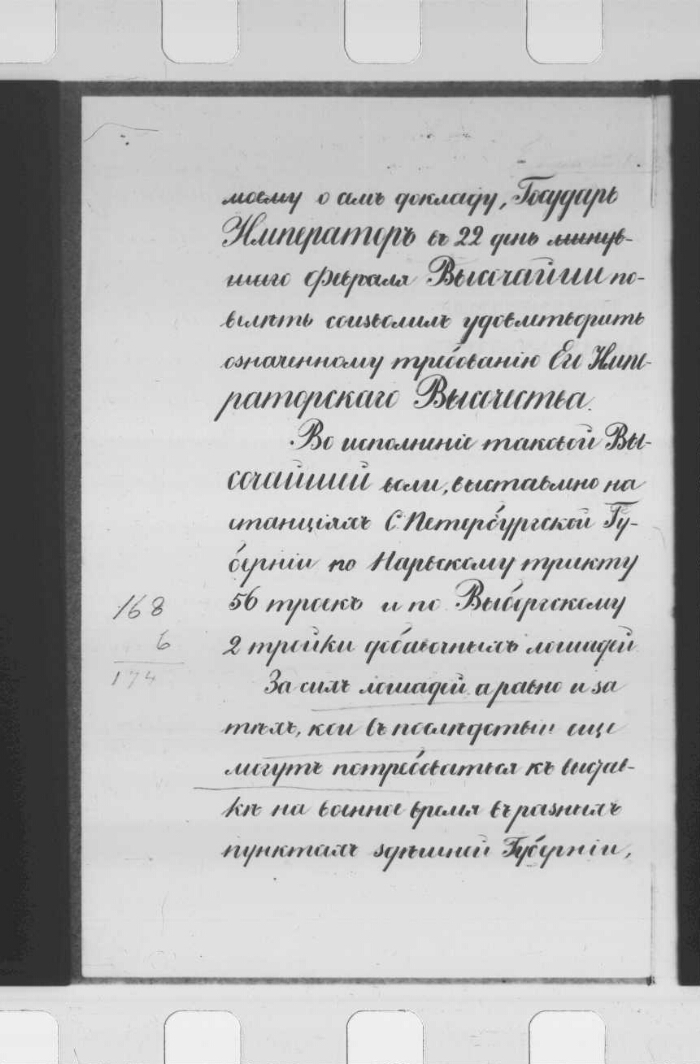 моему о семъ докладу, Государь
Императоръ въ 22 день минув-
шаго февраля Высочайше по-
велѣть соизволилъ удовлетворить
означенному требованію Его Импе-
раторскаго Высочества.
Во исполненіе таковой Вы-
сочайшей воли, выставлено на
станціяхъ С. Петербургской Гу-
берніи по Нарвскому тракту
168
56 троекъ и по Выборгскому
6
2 тройки добавочныхъ лошадей
174
За сихъ лошадей а равно и за
тѣхъ, кои въ послѣдствіи еще
могутъ потребоваться къ выстав-
кѣ на военное время въ разныхъ
пунктахъ здѣшней Губерніи,